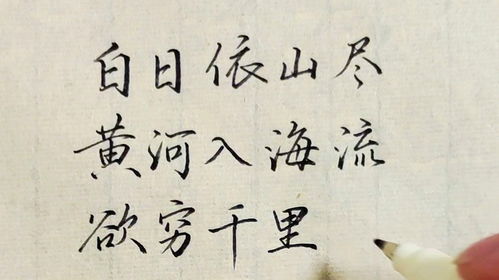 白日依山尽
黄河入海流
欲穷千里